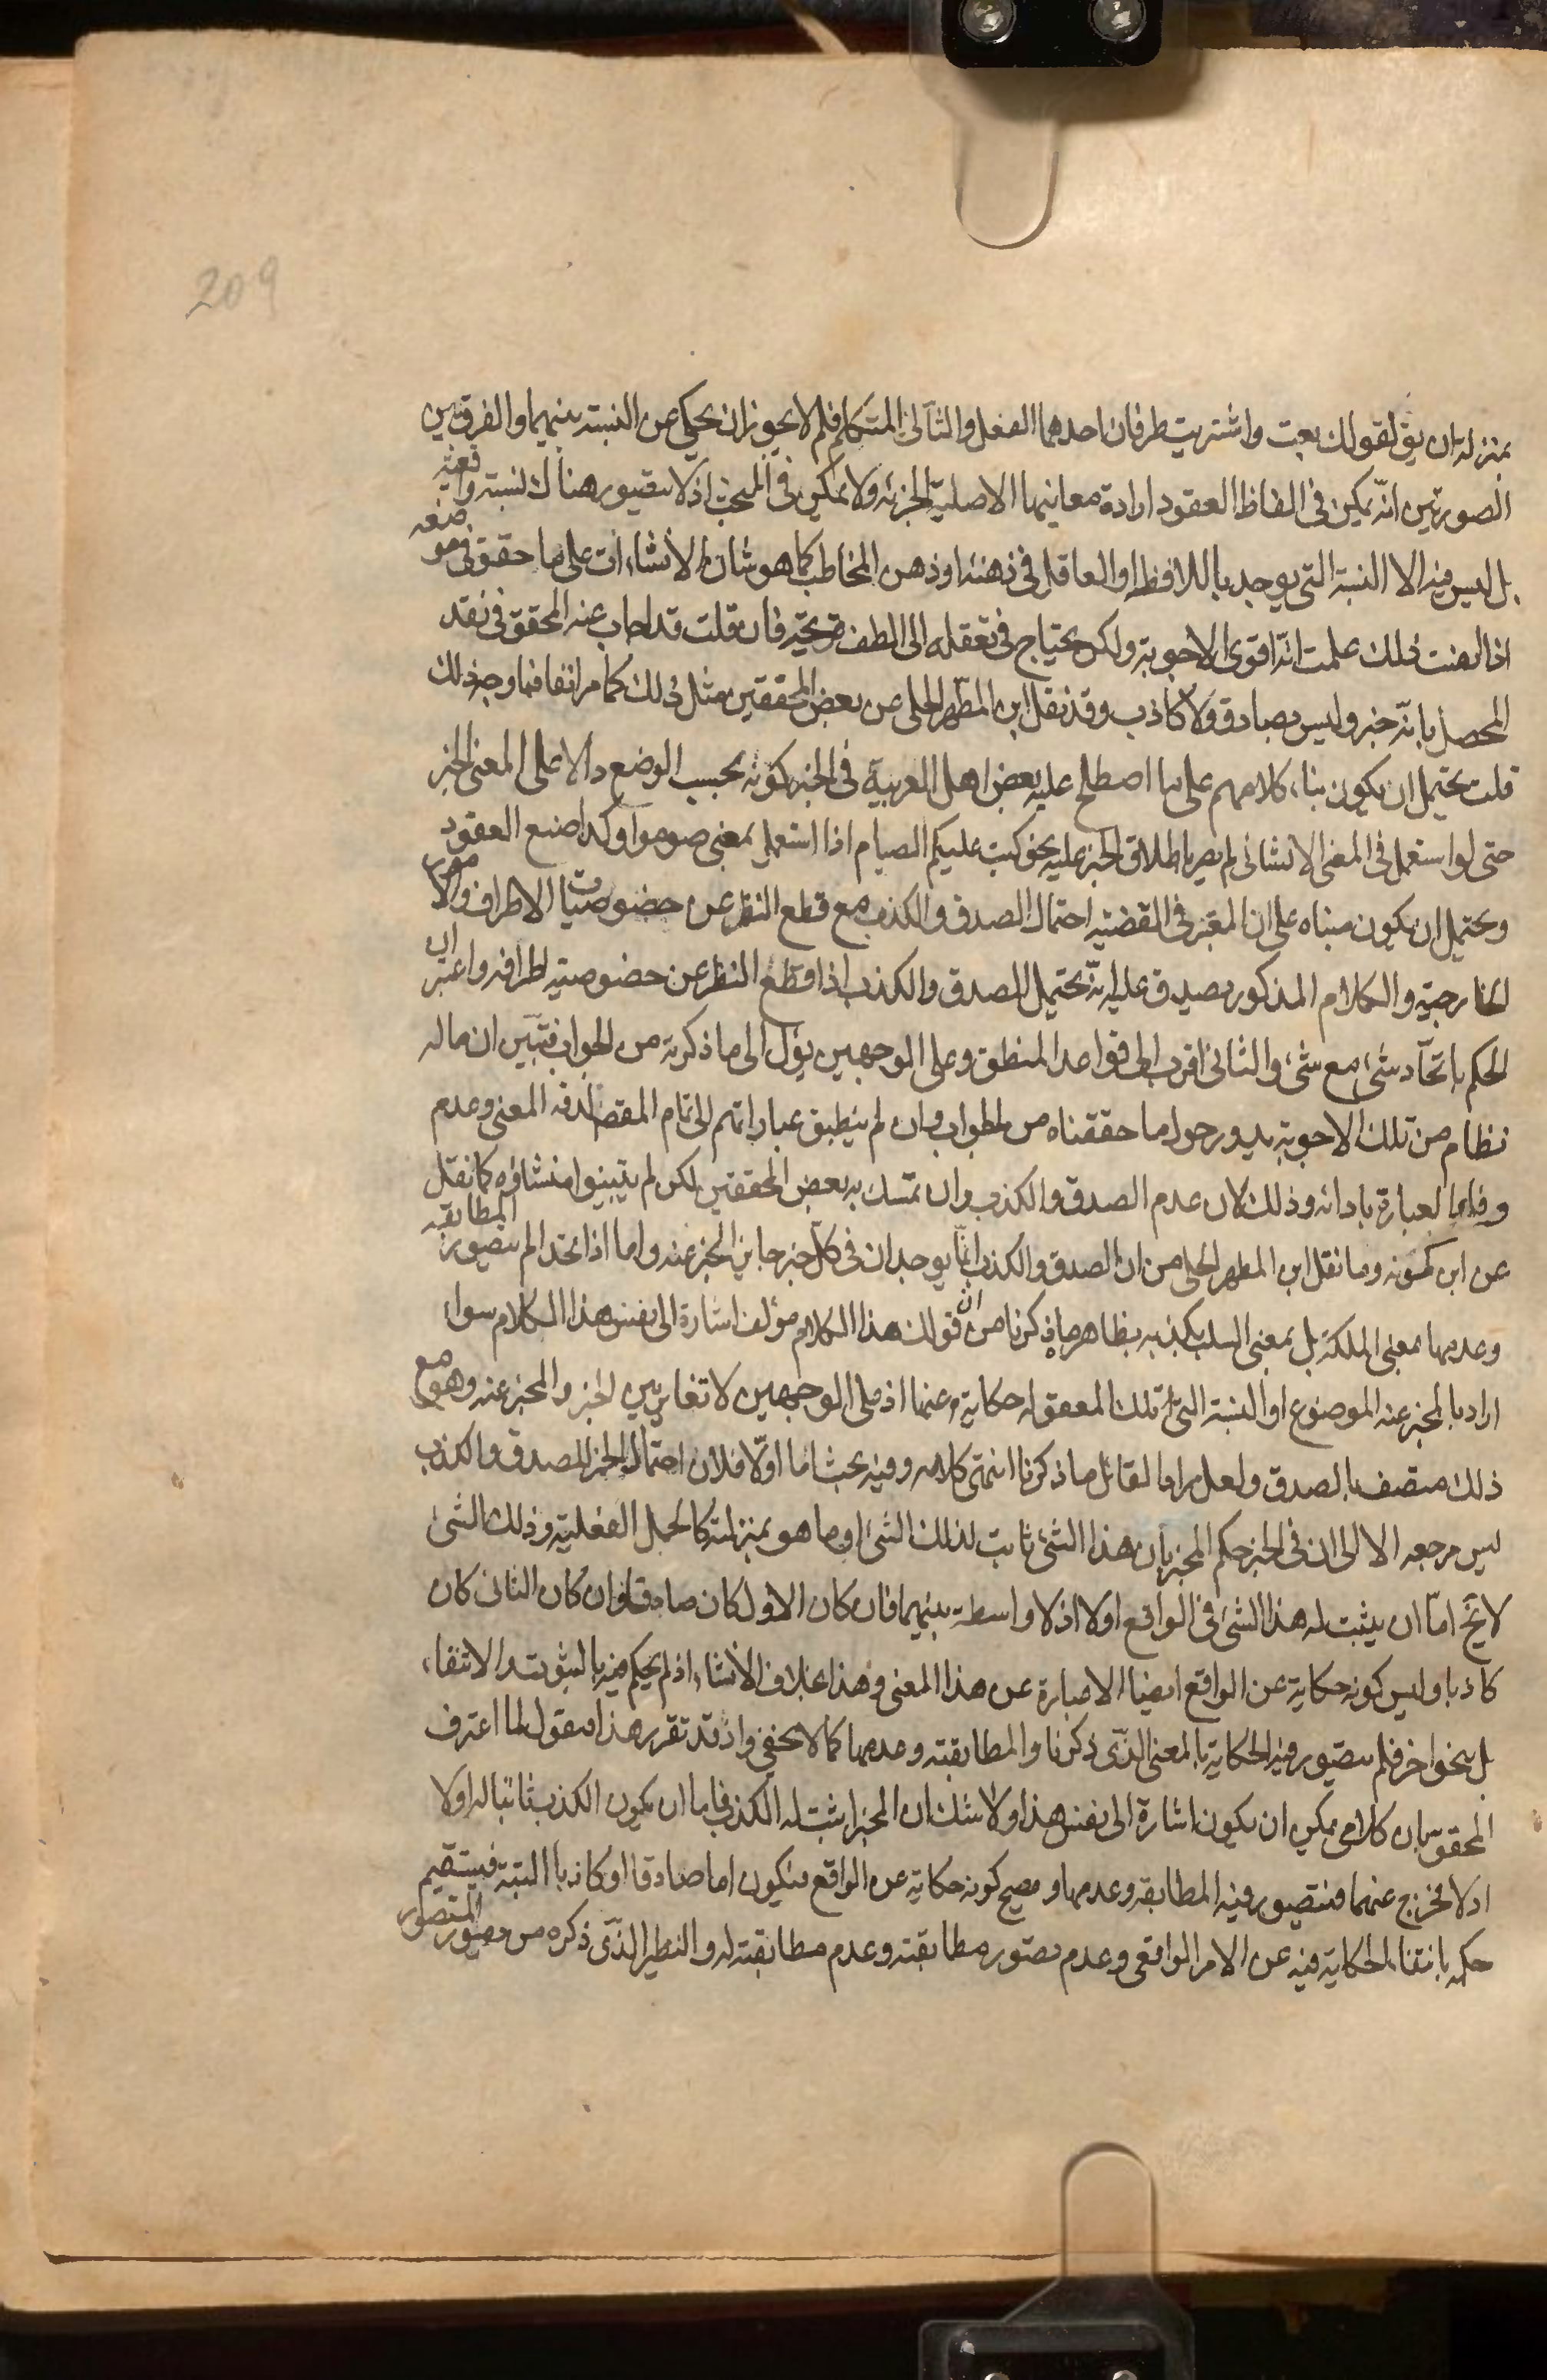 209
بمنزلة ان يق لقولك بعت واشتريت طرفان احدهما الفعل والثاني المتكلم فلم لا يجوز ان يحكي عن النسبة بينهما والفرق بين
الصورتين انه يمكن في الفاظ العقود ارادة معانيها الاصلية الخبرية ولا يمكن في المبحث اذ لا يتصور هناك نسبة واقعية
بل ليس فيه الا النسبة التي يوجدها اللافظ او العاقل في ذهنه او ذهن المخاطب كما هو شان الانشاءات على ما حقق في موضعه
اذا اتقنت ذلك علمت انه اقوى الاجوبة ولكن يحتاج في تعقله الى لطف قريحة فان قلت قد اجاب عنه المحقق في نقد
المحصل بانه خبر وليس بصادق ولا كاذب وقد نقل ابن المطهر الحلي عن بعض المحققين مثل ذلك كما مر انفا فما وجه ذلك
قلت يحتمل ان يكون بناء كلامهم على ما اصطلح عليه بعض اهل العربية في الخبر كونه بحسب الوضع دالا على المعنى الخبر
حتى لو استعمل في المعنى الانشائي لم يضر باطلاق الخبر عليه نحو كتب عليكم الصيام اذا استعمل بمعنى صوموا وكذا صنع العقود
ويحتمل ان يكون مبناه على ان المعتبر في القضية احتمال الصدق والكذب مع قطع النظر عن خصوصيات الاطراف والامور
الخارجية والكلام المذكور يصدق عليه انه يحتمل الصدق والكذب اذا قطع النظر عن خصوصية اطرافه واعتبر ان
الحكم باتحاد شئ مع شئ والثاني اقرب الى قواعد المنطق وعلى الوجهين يؤل الى ما ذكرته من الجواب فتبين ان ماله
نظام من تلك الاجوبة يدور حول ما حققناه من الجواب وان لم ينطبق عباراتهم الى تمام المقص لدقة المعنى وعدم
وفاء العبارة بادائه وذلك لان عدم الصدق والكذب وان تمسك به بعض المحققين لكن لم يتبينوا منشاؤه كما نقل
عن ابن كمونه وما نقل ابن المطهر الحلي من ان الصدق والكذب انما يوجدان في كل خبر جاين الخبر عنه واما اذا اتحدا لم يتصور المطابقة
وعدمها بمعنى الملكة بل بمعنى السلب يكذبه بظاهر ما ذكرنا من ان قولك هذا الكلام مؤلف اشارة الى نفس هذا الكلام سواء
اراد بالمخبر عنه الموضوع او النسبة التي تلك المعقوله حكاية عنها اذ على الوجهين لا تغاير بين الخبر والمخبر عنه وهو مع
ذلك متصف بالصدق ولعل مراد القائل ما ذكرنا انتهى كلامه وفيه بحث اما اولا فلان احتمال الخبر الصدق والكذب
ليس مرجعه الا الى ان في الخبر حكم المخبر بان هذا الشئ ثابت لذلك الشئ او ما هو بمنزلته كالجمل الفعلية وذلك الشئ
لا يخ اما ان يثبت له هذا الشئ في الواقع اولا اذ لا واسطة بينهما فان كان الاول كان صادقا وان كان الثاني كان
كاذبا وليس كونه حكاية عن الواقع ايضا الا عبارة عن هذا المعنى وهذا بخلاف الانشاء اذ لم يحكم فيه بالثبوت والانتفاء
بل بنحو اخر فلم يتصور فيه الحكاية بالمعنى الذي ذكرنا والمطابقة وعدمها كما لا يخفى واذ قد تقرر هذا فنقول لما اعترف
المحقق بان كلامي يمكن ان يكون اشارة الى نفس هذا ولا شك ان المخبر اثبت له الكذب فاما ان يكون الكذب ثابتا له اولا
اذ لا مخرج عنهما فيتصور فيه المطابقة وعدمها وصح كونه حكاية عن الواقع فيكون اما صادقا او كاذبا البتة فيستقيم
حكمه بانتفاء الحكاية فيه عن الامر الواقعي وعدم تصور مطابقته وعدم مطابقته له والنظير الذي ذكره من تصور المتصور